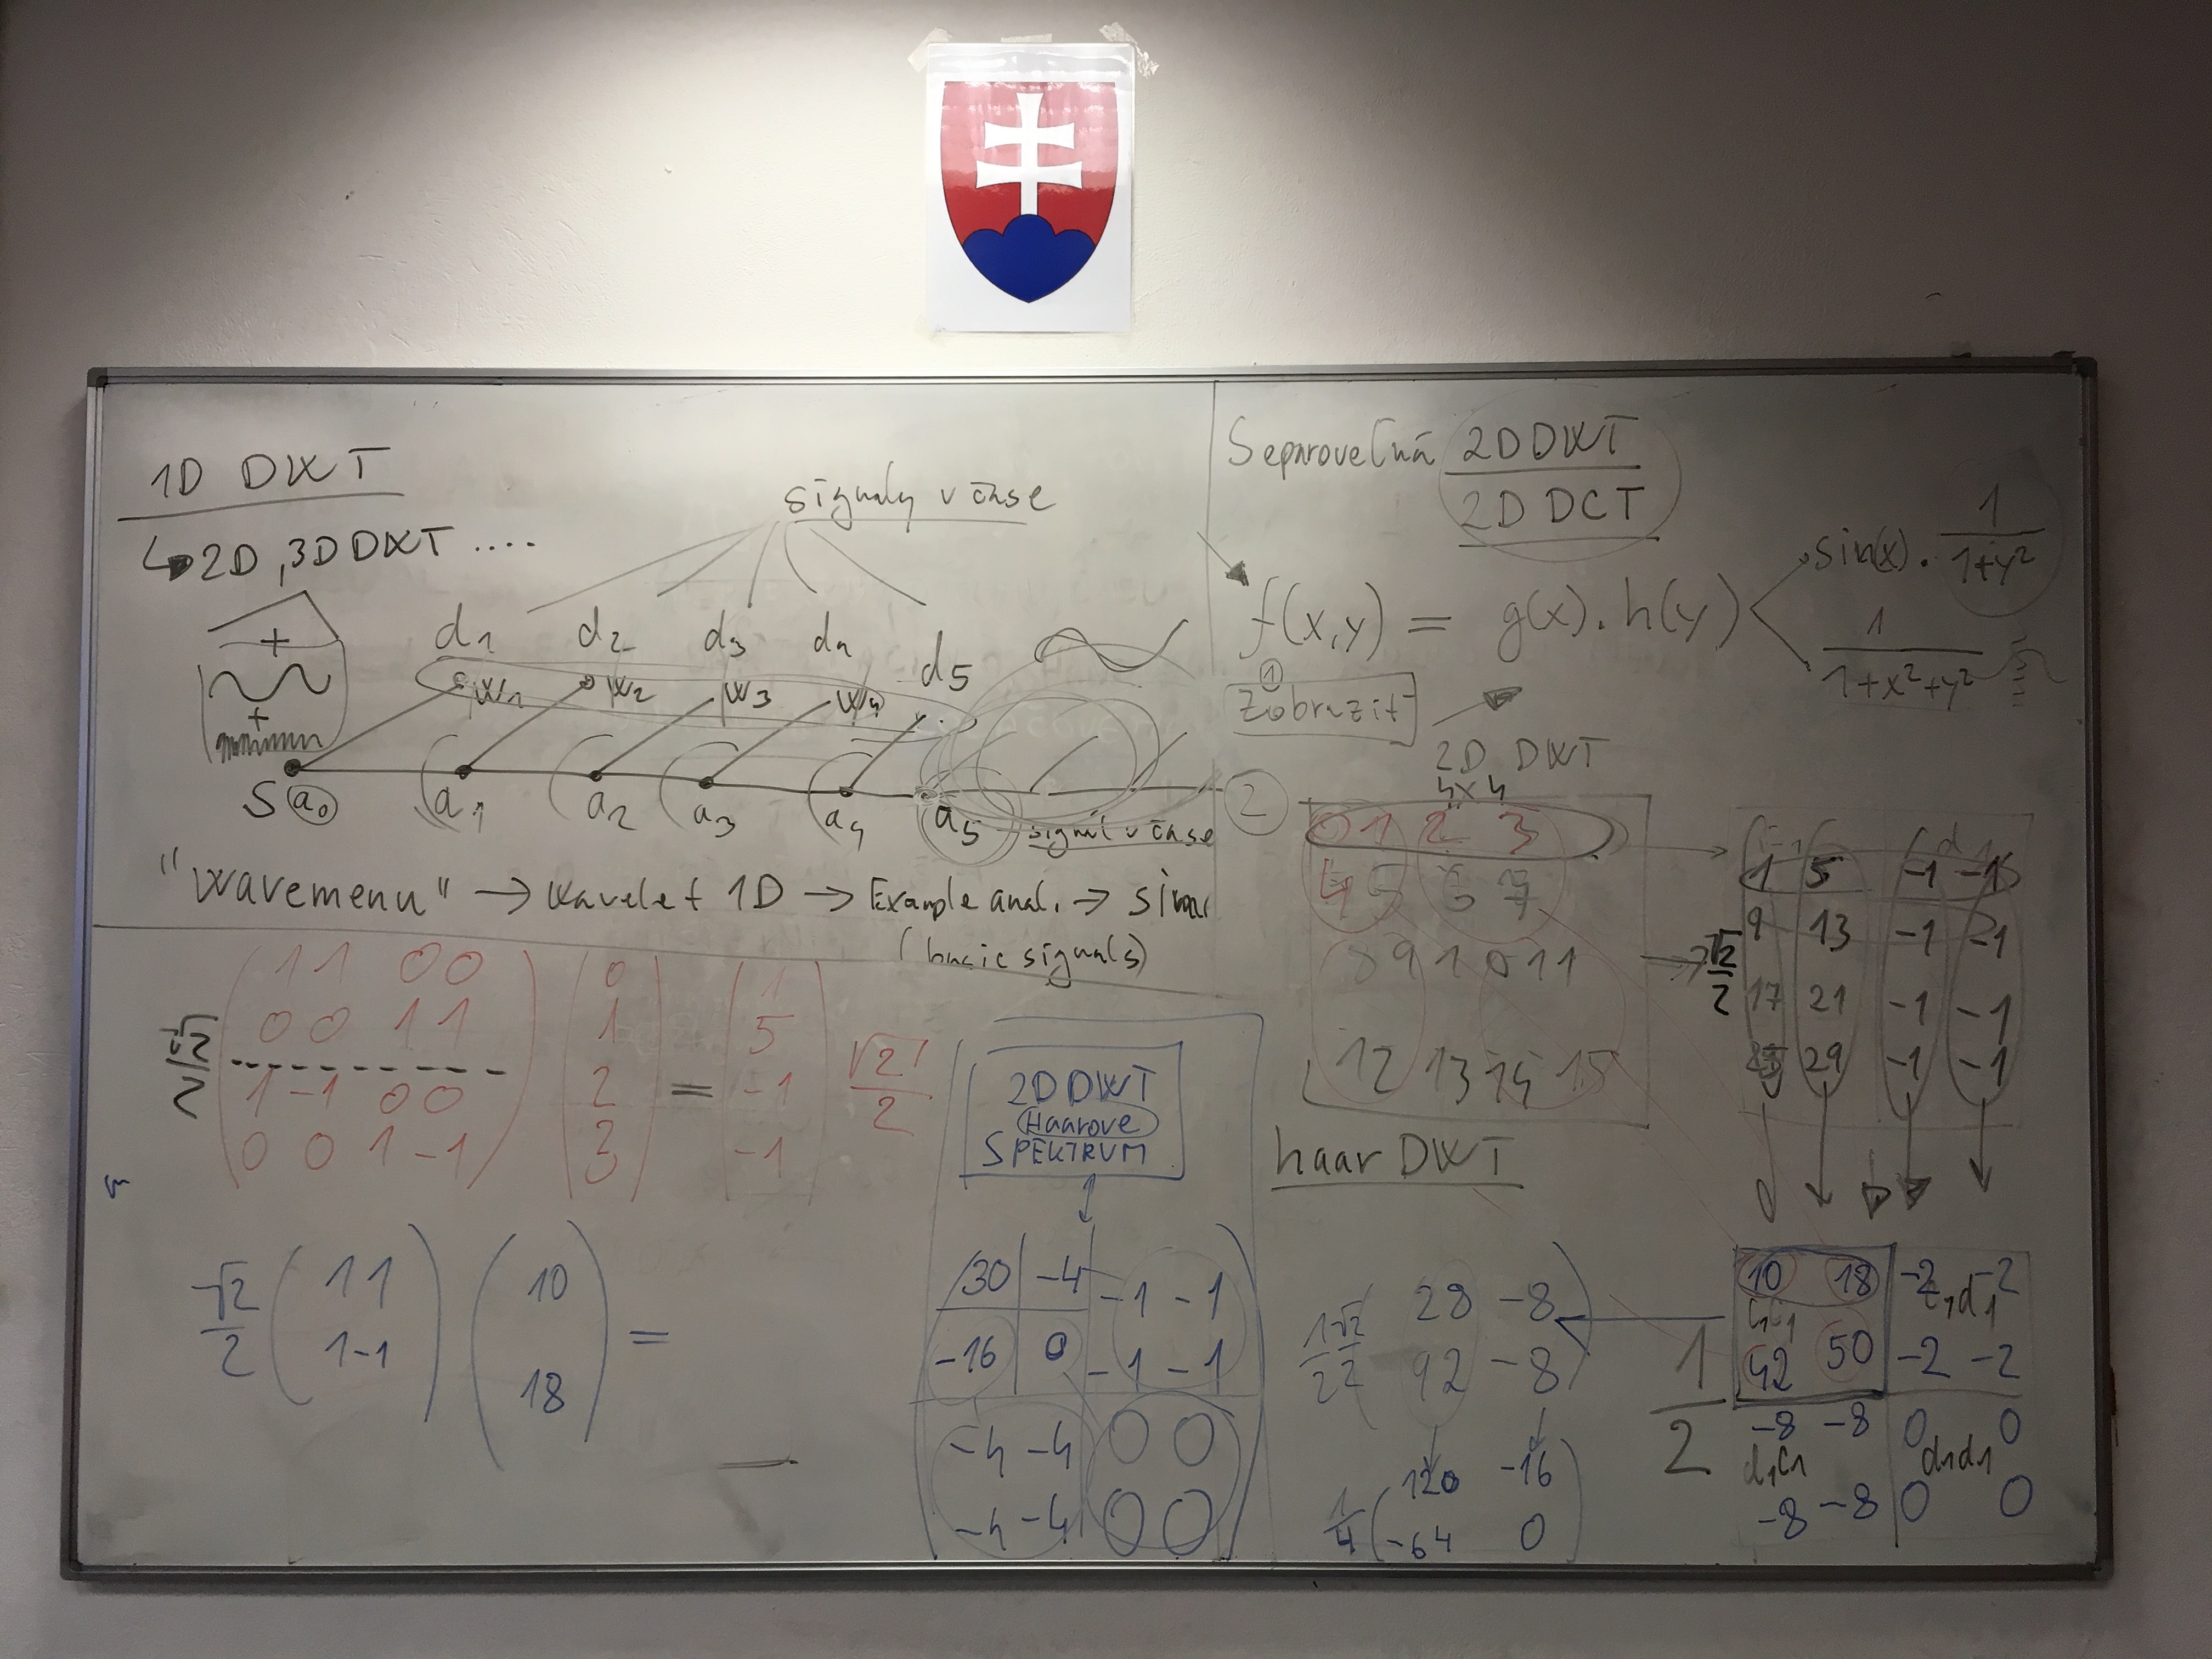 1D DWT
2D, 3D DWT ....
signaly v čase
d1 d2 d3 d4 d5
w1 w2 w3 w4
S a0 a1 a2 a3 a4 a5 signál v čase
"wavemenu" → wavelet 1D → Example anal. →
(basic signals)
√2/2
1 1 0 0
0 0 1 1
1 -1 0 0
0 0 1 -1
0
1
2
3
=
1
5
-1
-1
√2/2
√2/2
1 1
1 -1
10
18
=
2D DWT
Haarove
SPEKTRUM
30 -4 -1 -1
-16 0 -1 -1
-4 -4 0 0
-4 -4 0 0
Separoveľná 2D DWT
2D DCT
f(x,y) = g(x).h(y)
sin(x) . 1/(1+y²)
1/(1+x²+y²)
1
Zobraziť
2
2D DWT
4x4
0 1 2 3
4 5 6 7
8 9 10 11
12 13 14 15
haar DWT
√2/2
1 5 -1 -1
9 13 -1 -1
17 21 -1 -1
25 29 -1 -1
1/2
10 18 -2 -2
c1c1 c1d1
42 50 -2 -2
-8 -8 0 0
d1c1 d1d1
-8 -8 0 0
1/2 √2/2
28 -8
92 -8
1/4
120 -16
-64 0